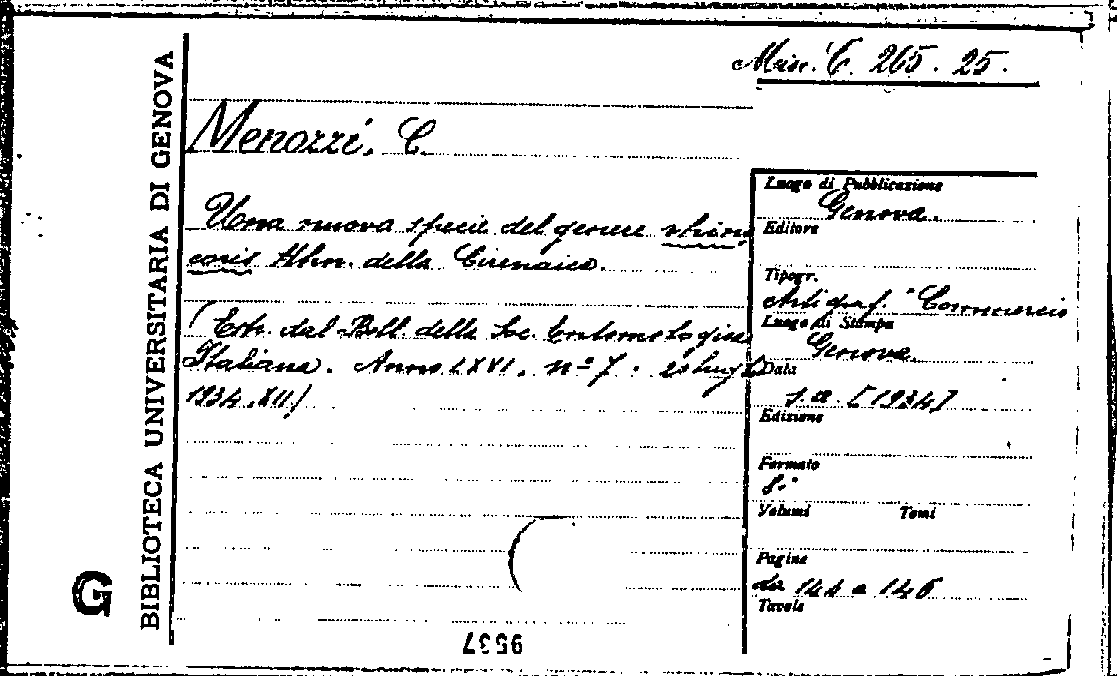 BIBLIOTECA UNIVERSITARIA DI GENOVA
G
Misc. C. 265. 25.
Menozzi, C.
Una nuova specie del genere
della Cirenaica.
(Estr. dal Boll. della Soc. Entomologica
Italiana. Anno LXVI, nº 7. 20 lugl
1934. XII)
Luogo di Pubblicazione
Genova.
Editore
Tipogr.
Artigraf. Commercio
Luogo di Stampa
Genova.
Data
s. a. [1934]
Edizione
Formato
8.º
Volumi Tomi
Pagine
da 144 a 146
Tavole
9537